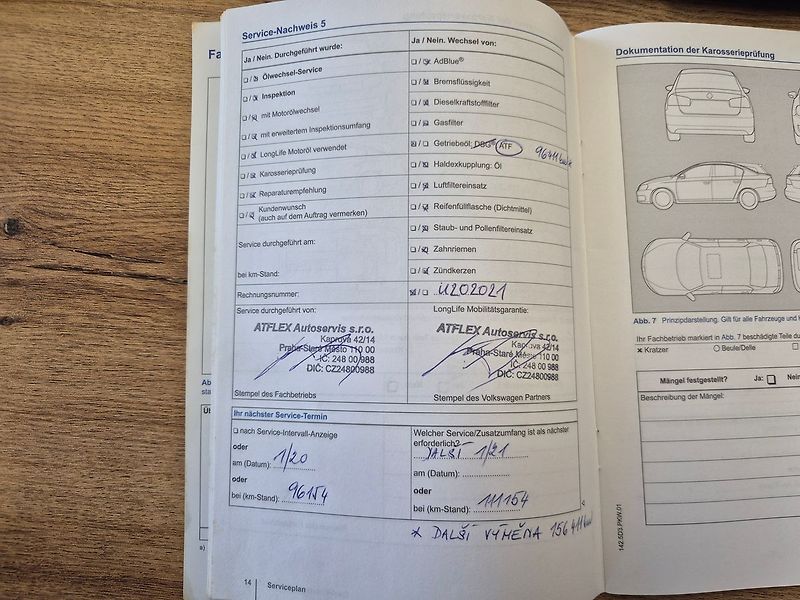 Fa
Service-Nachweis 5
Ja / Nein. Durchgeführt wurde:
Ölwechsel-Service
Inspektion
mit Motorölwechsel
mit erweitertem Inspektionsumfang
LongLife Motoröl verwendet
Karosserieprüfung
Reparaturempfehlung
Kundenwunsch
(auch auf dem Auftrag vermerken)
Service durchgeführt am:
bei km-Stand:
Rechnungsnummer:
Service durchgeführt von:
ATFLEX Autoservis s.r.o.
Kaprova 42/14
Praha-Staré Město 110 00
IČ: 248 00 988
DIČ: CZ24800988
Stempel des Fachbetriebs
Ja / Nein. Wechsel von:
AdBlue®
Bremsflüssigkeit
Dieselkraftstofffilter
Gasfilter
Getriebeöl; DSG® ATF
Haldexkupplung: Öl
Luftfiltereinsatz
Reifenfüllflasche (Dichtmittel)
Staub- und Pollenfiltereinsatz
Zahnriemen
Zündkerzen
U202021
LongLife Mobilitätsgarantie:
ATFLEX Autoservis s.r.o.
Kaprova 42/14
Praha-Staré Město 110 00
IČ: 248 00 988
DIČ: CZ24800988
Stempel des Volkswagen Partners
Ihr nächster Service-Termin
nach Service-Intervall-Anzeige
oder
am (Datum): 1/20
oder
bei (km-Stand): 96154
Welcher Service/Zusatzumfang ist als nächster
erforderlich?
DALŠÍ 1/21
am (Datum):
oder
bei (km-Stand): 111154
* DALŠÍ VÝMĚNA 156411
14 Serviceplan
Dokumentation der Karosserieprüfung
Abb. 7 Prinzipdarstellung. Gilt für alle Fahrzeuge und
Ihr Fachbetrieb markiert in Abb. 7 beschädigte Teile du
x Kratzer
Beule/Delle
Mängel festgestellt? Ja: Nein
Beschreibung der Mängel:
142.5D3.PKW.01